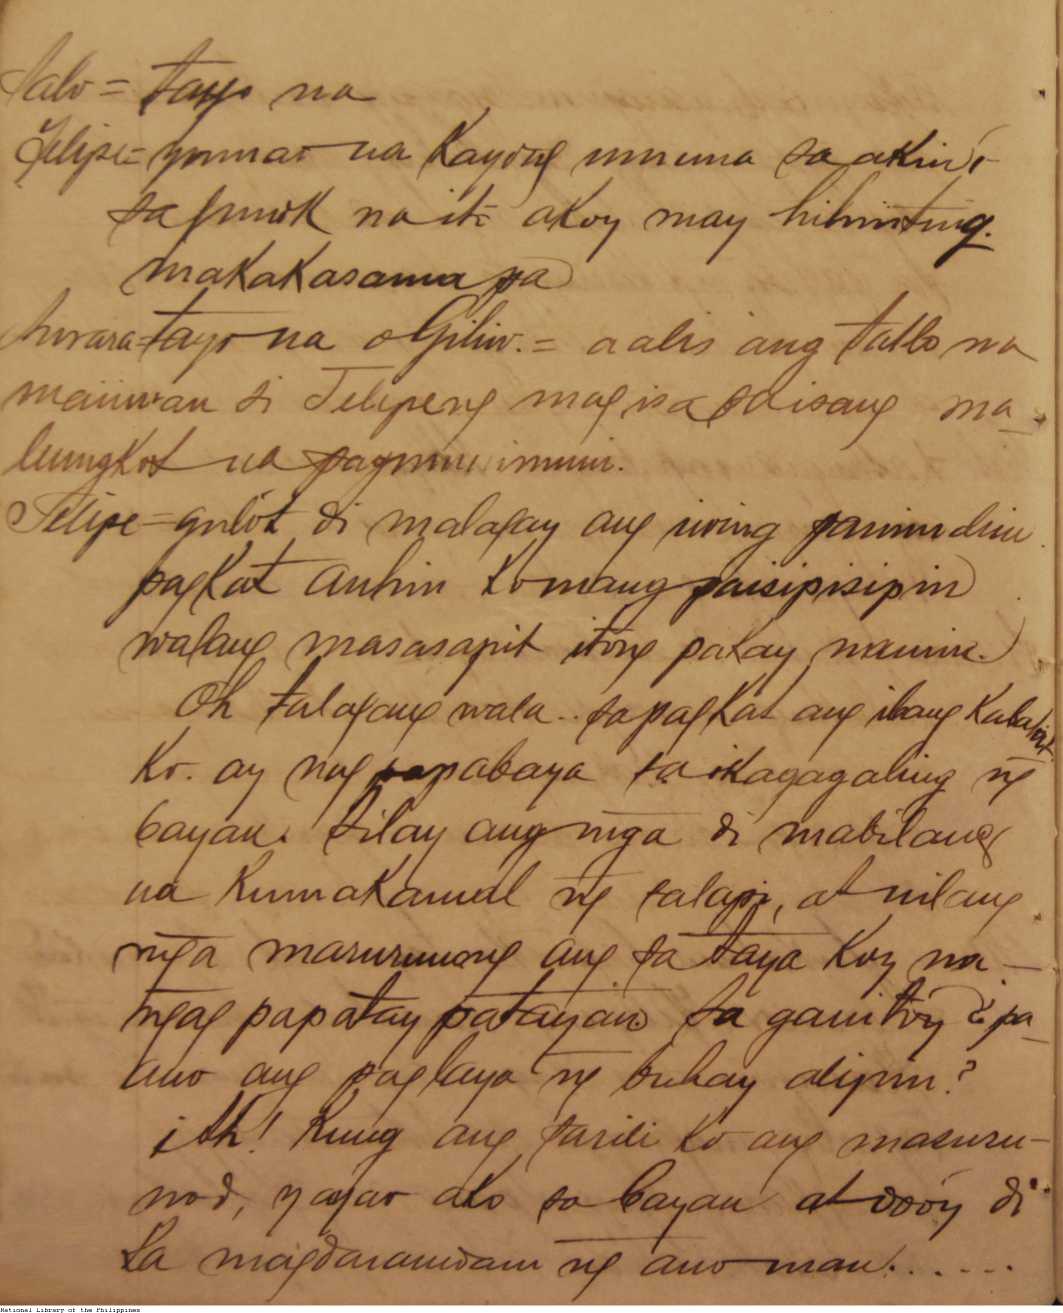 Salv = tayo na
Felipe = yumao na kayong umuna sa akin't
sa punok na ito akoy may hihinting.
makakasama pa
tayo na o Giliw. = aalis ang tatlo na
maiiwan si Felipeng magisa sa isang ma-
lungkot na pagmumunimuni.
Felipe = gulót di malagay ang aking panimdim
pagkat anhin ko mang paisipisipin
walang masasapit itong pakay namin.
Oh talagang wala.. sapagkat ang ibang kabalat
ko. ay nag papabaya sa ikagagaling ng
bayan. Silay ang mga di mabilang
na kumakamal ng salapi, at nilang
mga marurunong ang sa taya koy na-
ngag papatay patayan. Sa ganitoy ¿pa-
ano ang paglaya ng buhay alipin?
¡Ah! Kung ang sarili ko ang masusu-
nod, yayao ako sa bayan at dooy di
sa magdaramdam ng ano man!......
National Library of the Philippines